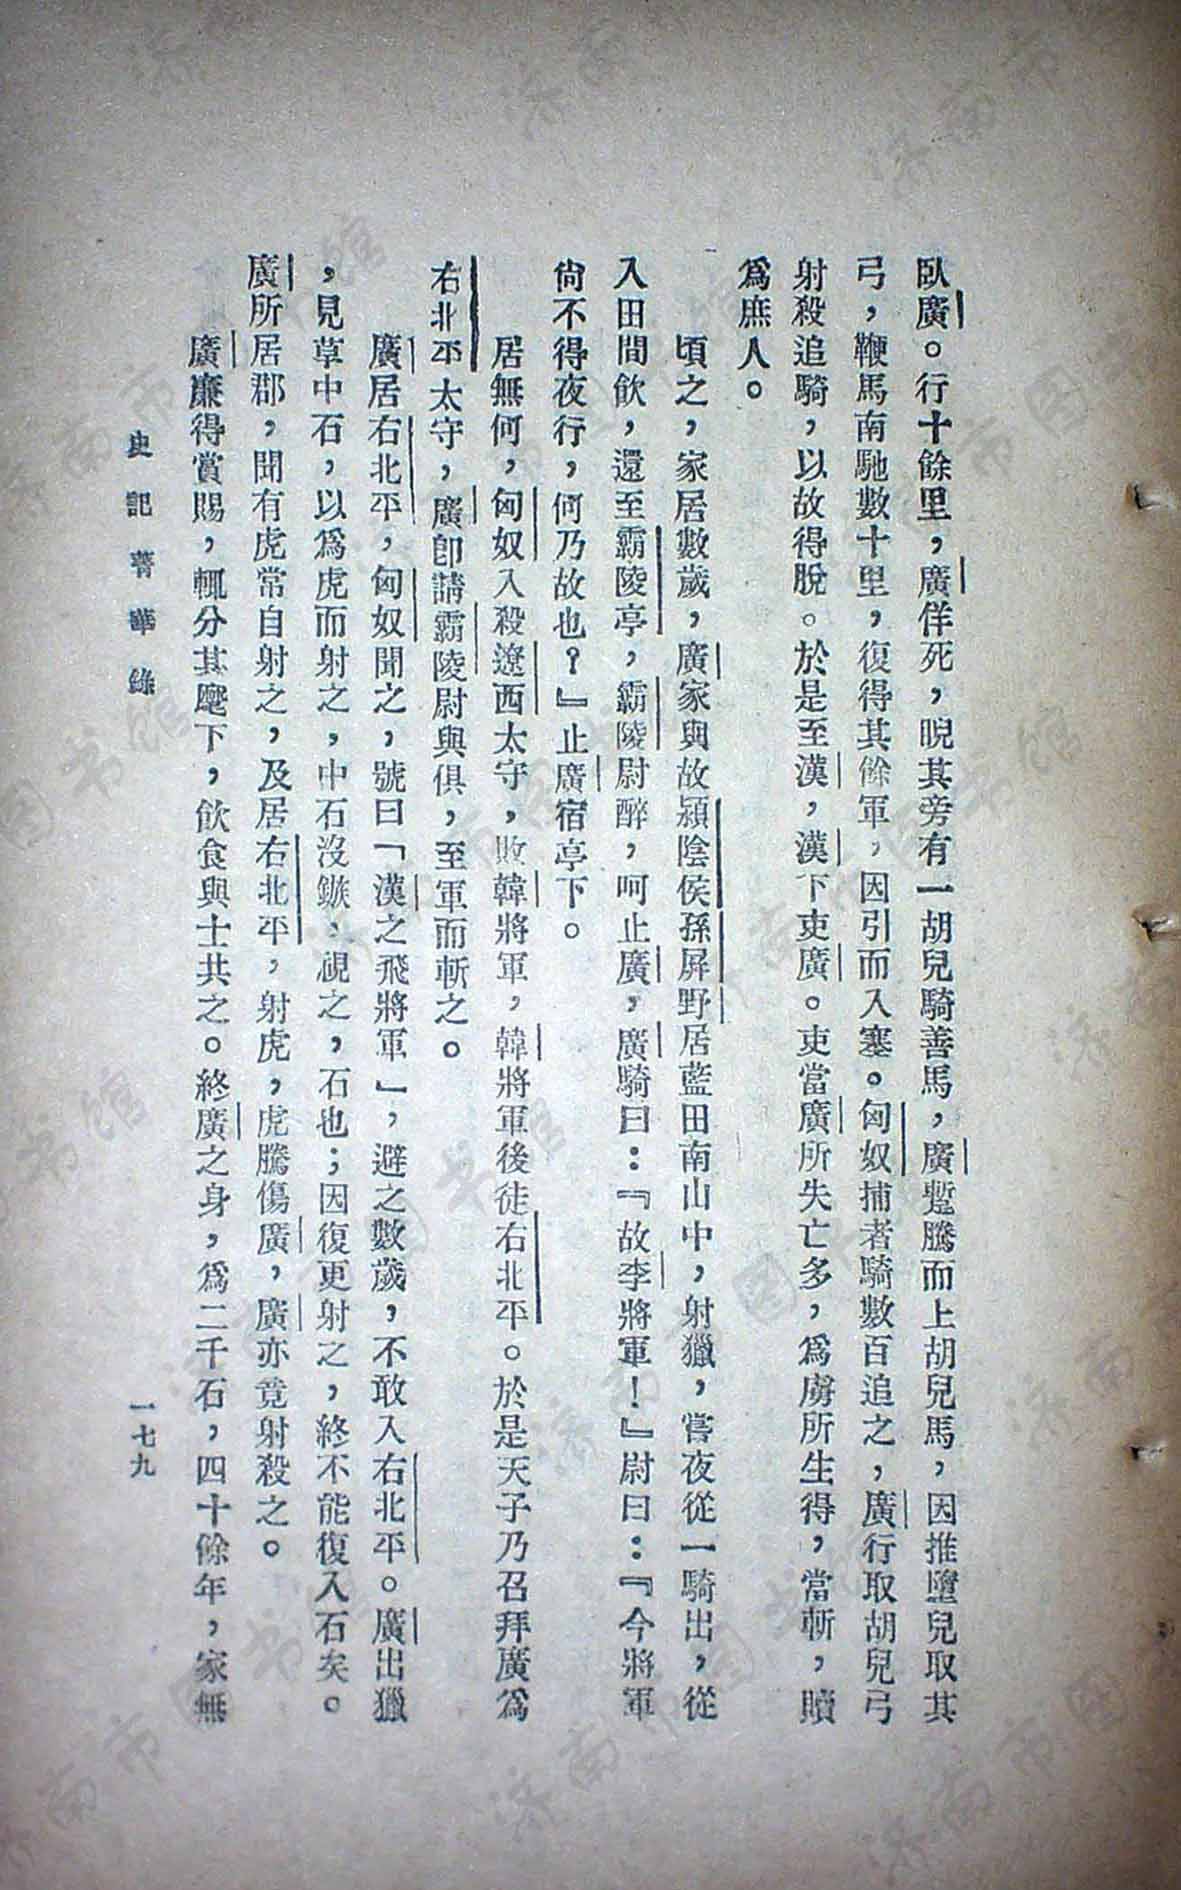 臥廣。行十餘里，廣佯死，睨其旁有一胡兒騎善馬，廣蹔騰而上胡兒馬，因推墮兒取其
弓，鞭馬南馳數十里，復得其餘軍，因引而入塞。匈奴捕者騎數百追之，廣行取胡兒弓
射殺追騎，以故得脫。於是至漢，漢下吏廣。吏當廣所失亡多，爲虜所生得，當斬，贖
爲庶人。
頃之，家居數歲，廣家與故潁陰侯孫屏野居藍田南山中，射獵，嘗夜從一騎出，從
入田間飲，還至霸陵亭，霸陵尉醉，呵止廣，廣騎曰：『故李將軍！』尉曰：『今將軍
尙不得夜行，何乃故也？』止廣宿亭下。
居無何，匈奴入殺遼西太守，敗韓將軍，韓將軍後徙右北平。於是天子乃召拜廣爲
右北平太守，廣卽請霸陵尉與俱，至軍而斬之。
廣居右北平，匈奴聞之，號曰「漢之飛將軍」，避之數歲，不敢入右北平。廣出獵
，見草中石，以爲虎而射之，中石沒鏃，視之，石也；因復更射之，終不能復入石矣。
廣所居郡，聞有虎常自射之，及居右北平，射虎，虎騰傷廣，廣亦竟射殺之。
廣廉得賞賜，輒分其麾下，飮食與士共之。終廣之身，爲二千石，四十餘年，家無
史記菁華錄
一七九
济南市图书馆